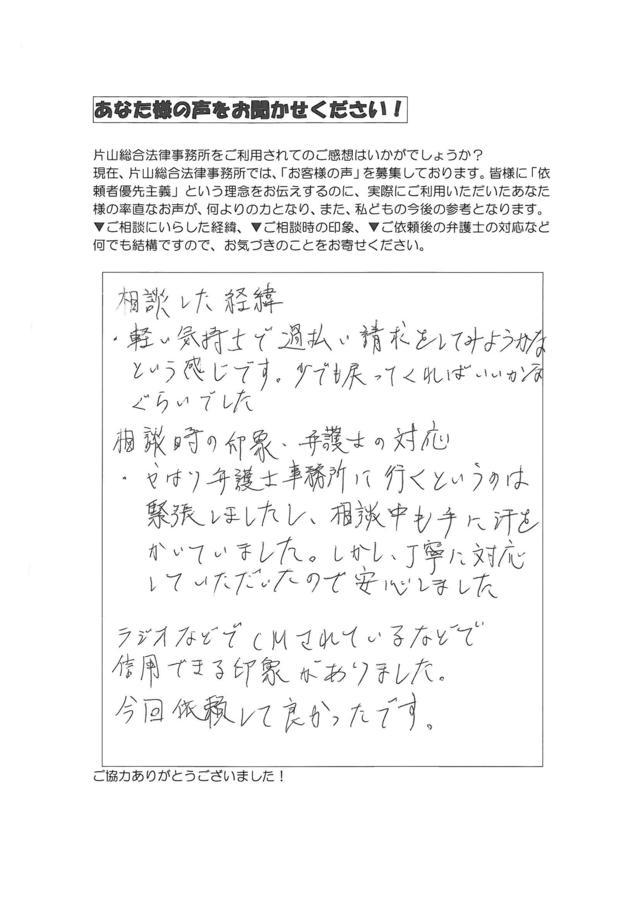 あなた様の声をお聞かせください!
片山総合法律事務所をご利用されてのご感想はいかがでしょうか?
現在、片山総合法律事務所では、「お客様の声」を募集しております。皆様に「依
頼者優先主義」という理念をお伝えするのに、実際にご利用いただいたあなた
様の率直なお声が、何よりの力となり、また、私どもの今後の参考となります。
▼ご相談にいらした経緯、▼ご相談時の印象、▼ご依頼後の弁護士の対応など
何でも結構ですので、お気づきのことをお寄せください。
相談した経緯
・軽い気持ちで過払い請求をしてみようかな
という感じです。少でも戻ってくればいいかな
ぐらいでした
相談時の印象・弁護士の対応
・やはり弁護士事務所に行くというのは
緊張しましたし、相談中も手に汗を
かいていました。しかし、丁寧に対応
していただいたので安心しました
ラジオなどでCMされているなどで
信用できる印象がありました。
今回依頼して良かったです。
ご協力ありがとうございました!